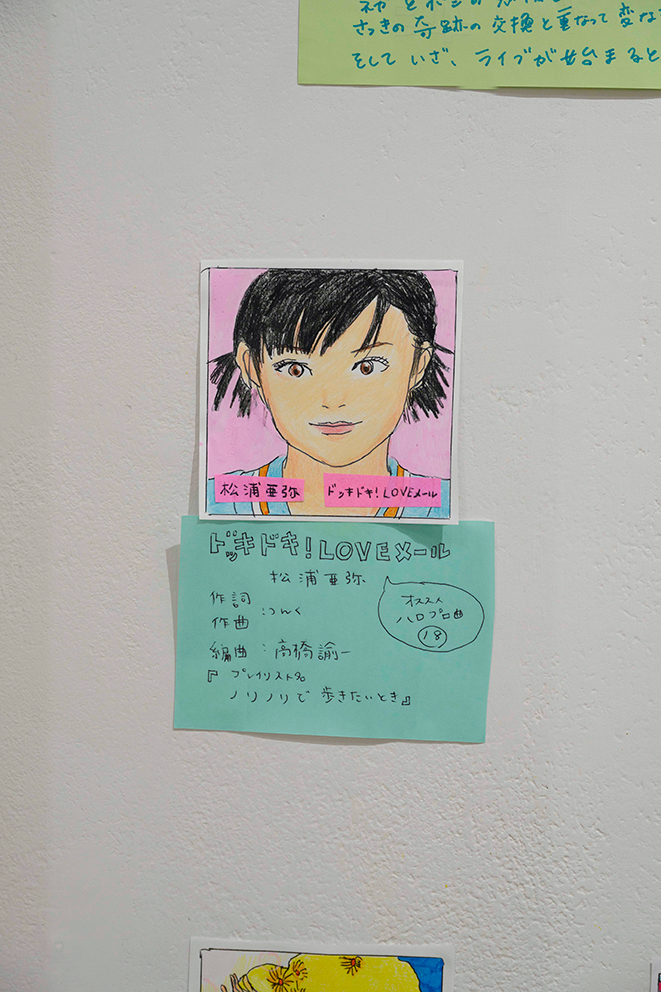 さっきの奇跡の交換と重なって変な
そして いざ、ライブが始まると
松浦亜弥
ドッキドキ!LOVEメール
ドッキドキ!LOVEメール
松浦亜弥
作詞
作曲 :つんく
編曲 :高橋諭一
『プレイリスト名
ノリノリで 歩きたいとき』
オススメ
ハロプロ曲
18